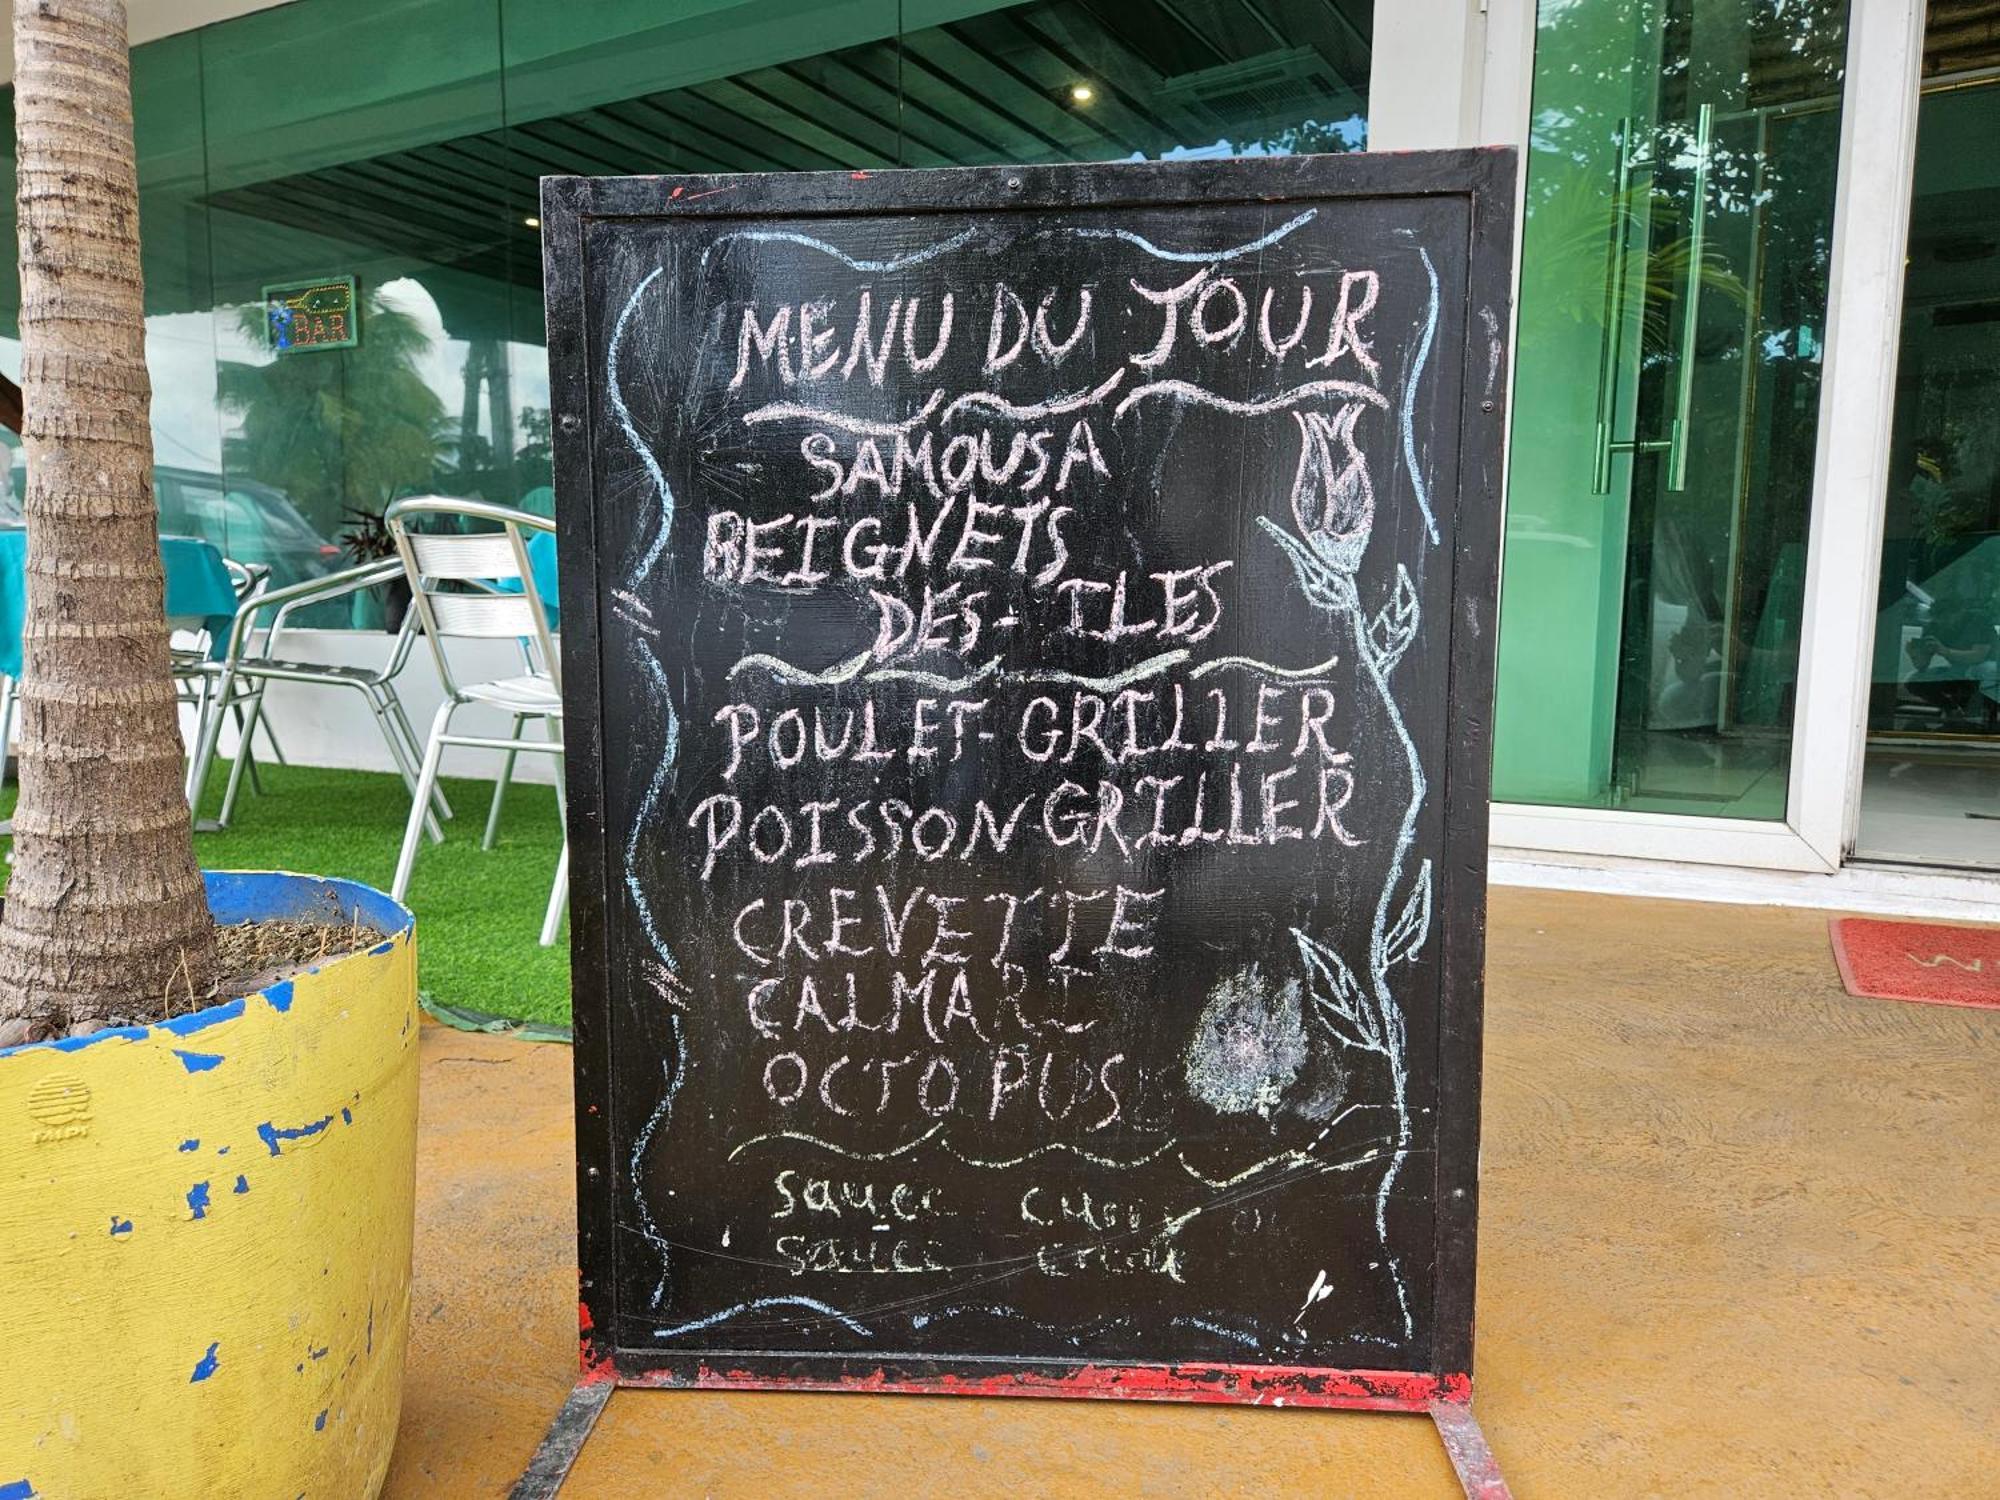 BAR
MENU DU JOUR
SAMOUSA
BEIGNETS
DES-ILES
POULET-GRILLER
POISSON-GRILLER
CREVETTE
CALMARI
OCTOPUS
Sauce
Sauce